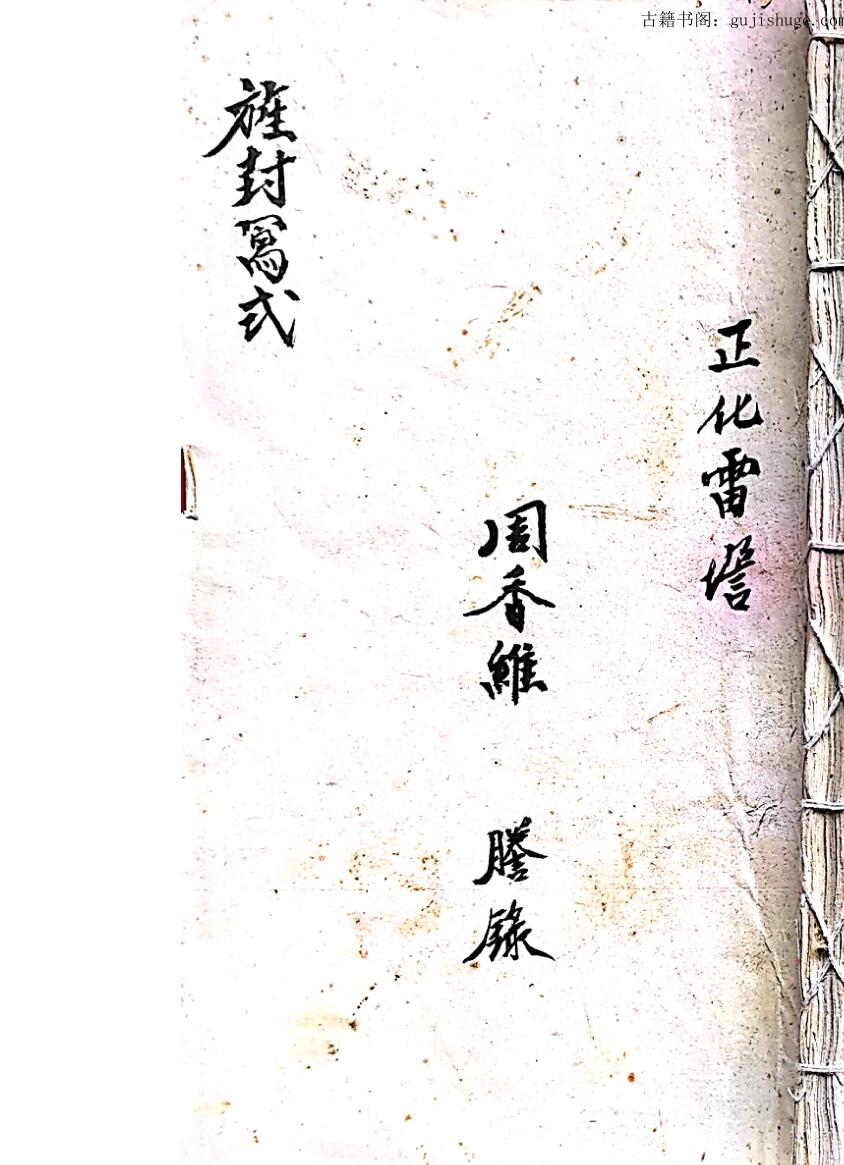 古籍书阁：gujishuge.com
正化雷
周香維 謄錄
旌封寫式